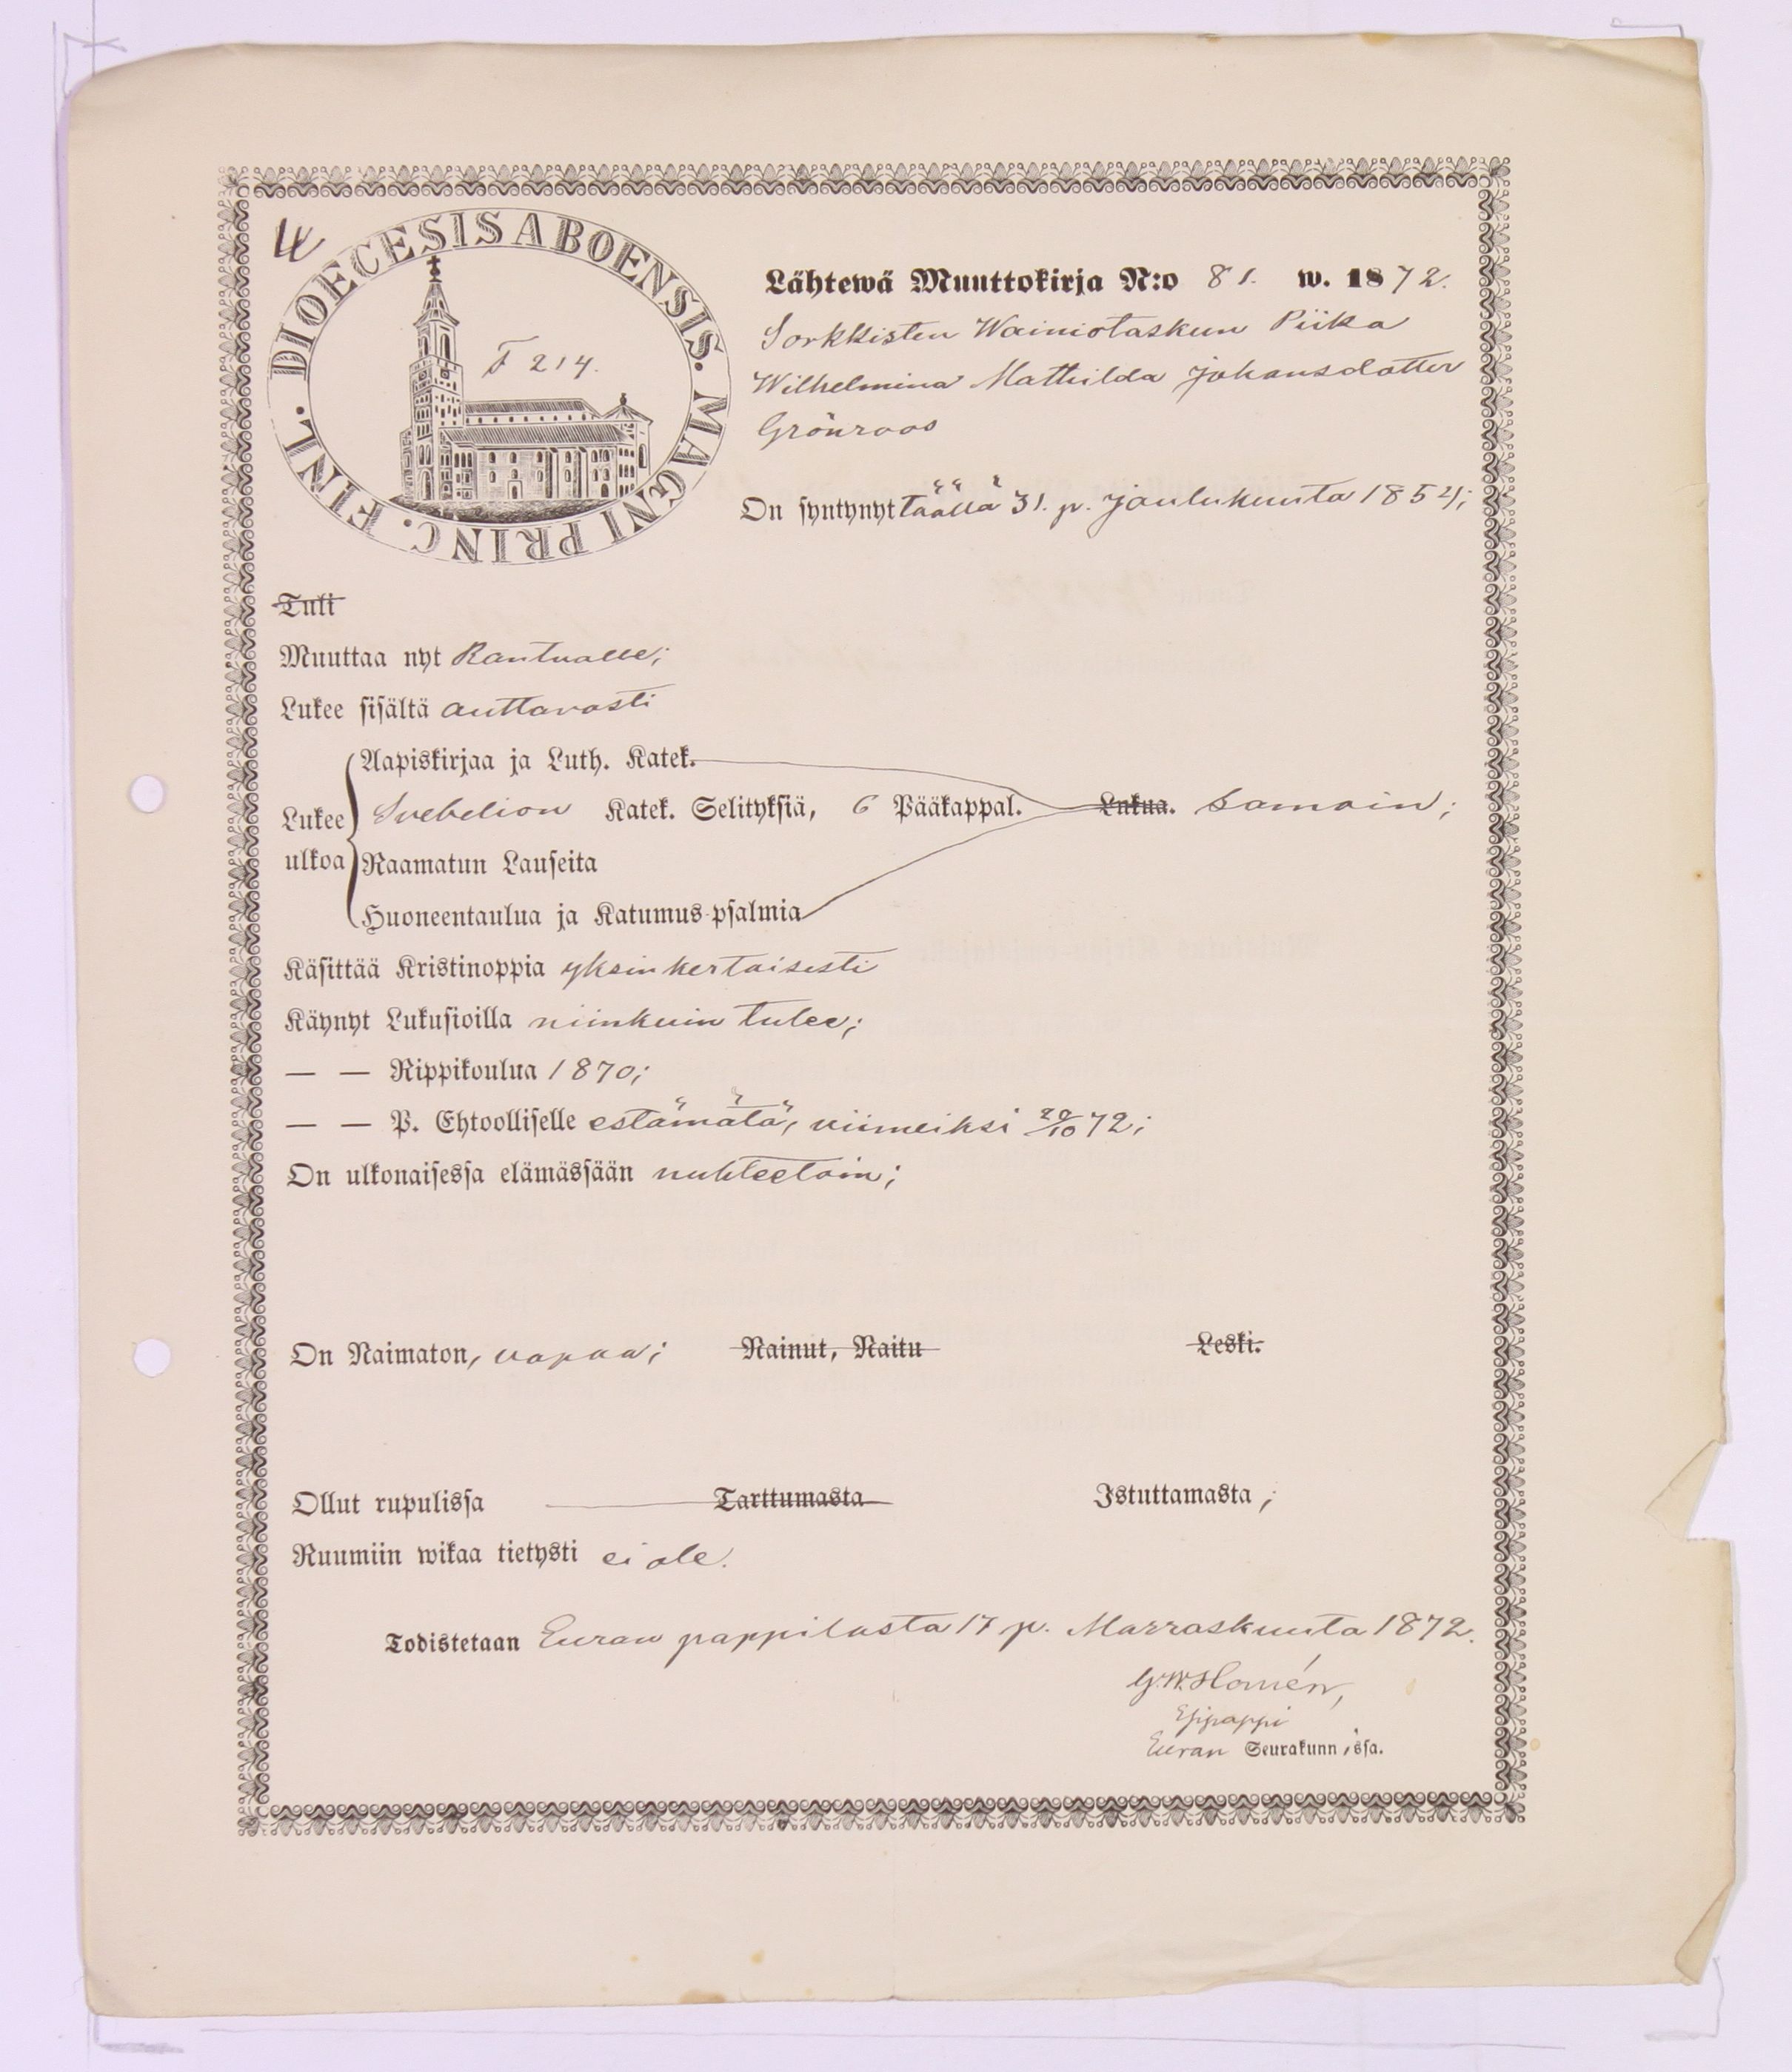 4
DIOECESIS ABOENSIS. MAGNI PRINC. FINL.
F 214.
Lähtewä Muuttokirja N:o 81. w. 1872.
Sorkkisten Wainiotaskun Piika
Wilhelmina Mathilda Johansdotter
Grönroos
On syntynyt täällä 31. p. Joulukuuta 1854;
Tuli
Muuttaa nyt Kantualle;
Lukee sisältä auttavasti
Aapiskirjaa ja Luth. Katek.
Lukee ulkoa Svebelion Katek. Selityksiä, 6 Pääkappal. Lukua. Samoin;
Raamatun Lauseita
Huoneentaulua ja Katumus-psalmia
Käsittää Kristinoppia yksinkertaisesti
Käynyt Lukusioilla niinkuin tulee;
— — Rippikoulua 1870;
— — P. Ehtoolliselle estämätä, viimeiksi 20/10 72;
On ulkonaisessa elämässään nuhteetoin;
On Naimaton, vapaa; Nainut, Naitu Leski.
Ollut rupulissa Tarttumasta Istuttamasta;
Ruumiin wikaa tietysti ei ole.
Todistetaan Euran pappilasta 17 p. Marraskuuta 1872.
G. W. Homén,
Esipappi
Euran Seurakunnissa.